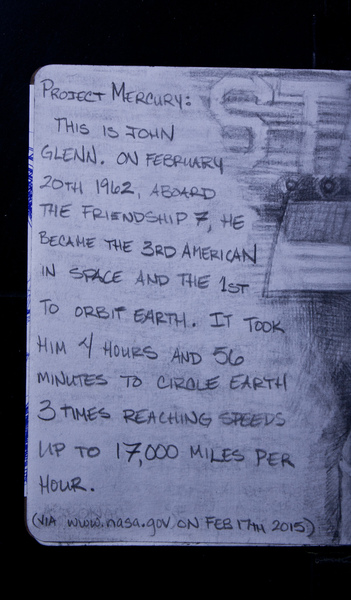 PROJECT MERCURY:
THIS IS JOHN
GLENN. ON FEBRUARY
20TH 1962, ABOARD
THE FRIENDSHIP 7, HE
BECAME THE 3RD AMERICAN
IN SPACE AND THE 1ST
TO ORBIT EARTH. IT TOOK
HIM 4 HOURS AND 56
MINUTES TO CIRCLE EARTH
3 TIMES REACHING SPEEDS
UP TO 17,000 MILES PER
HOUR.
(VIA www.nasa.gov ON FEB 17TH 2015)